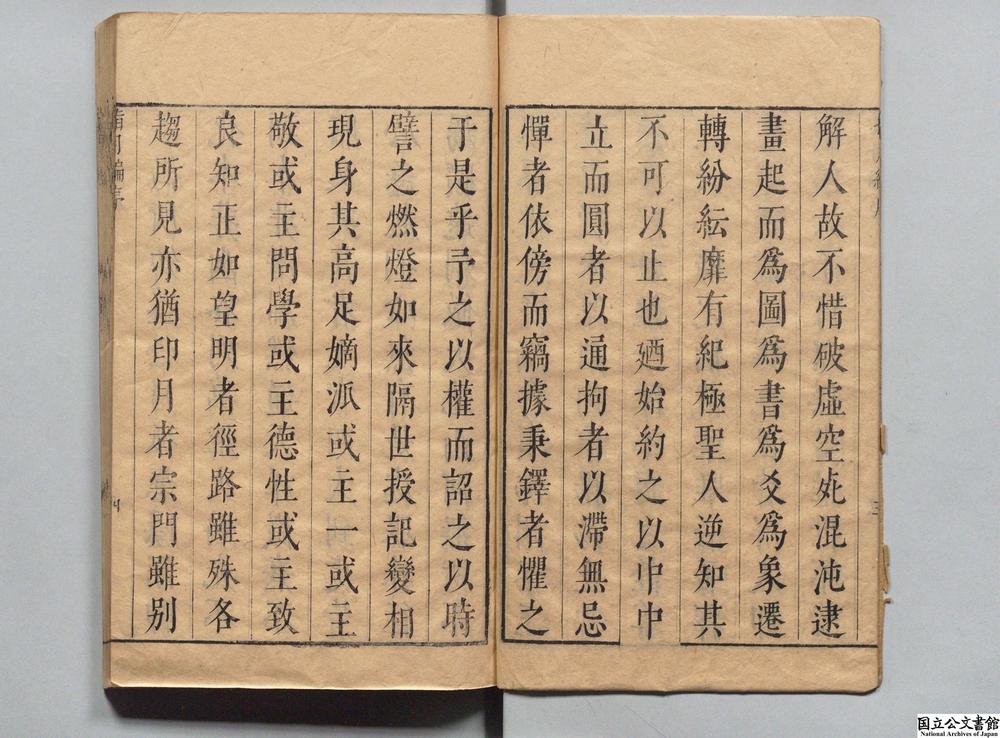 解人故不惜破虛空死混沌逮
畫起而爲圖爲書爲爻爲象遷
轉紛紜靡有紀極聖人逆知其
不可以止也廼始約之以中中
立而圓者以通拘者以滯無忌
憚者依傍而竊據秉鐸者懼之
于是乎予之以權而詔之以時
譬之燃燈如來隔世授記變相
現身其高足嫡派或主一或主
敬或主問學或主德性或主致
良知正如望明者徑路雖殊各
趨所見亦猶印月者宗門雖别
国立公文書館
National Archives of Japan